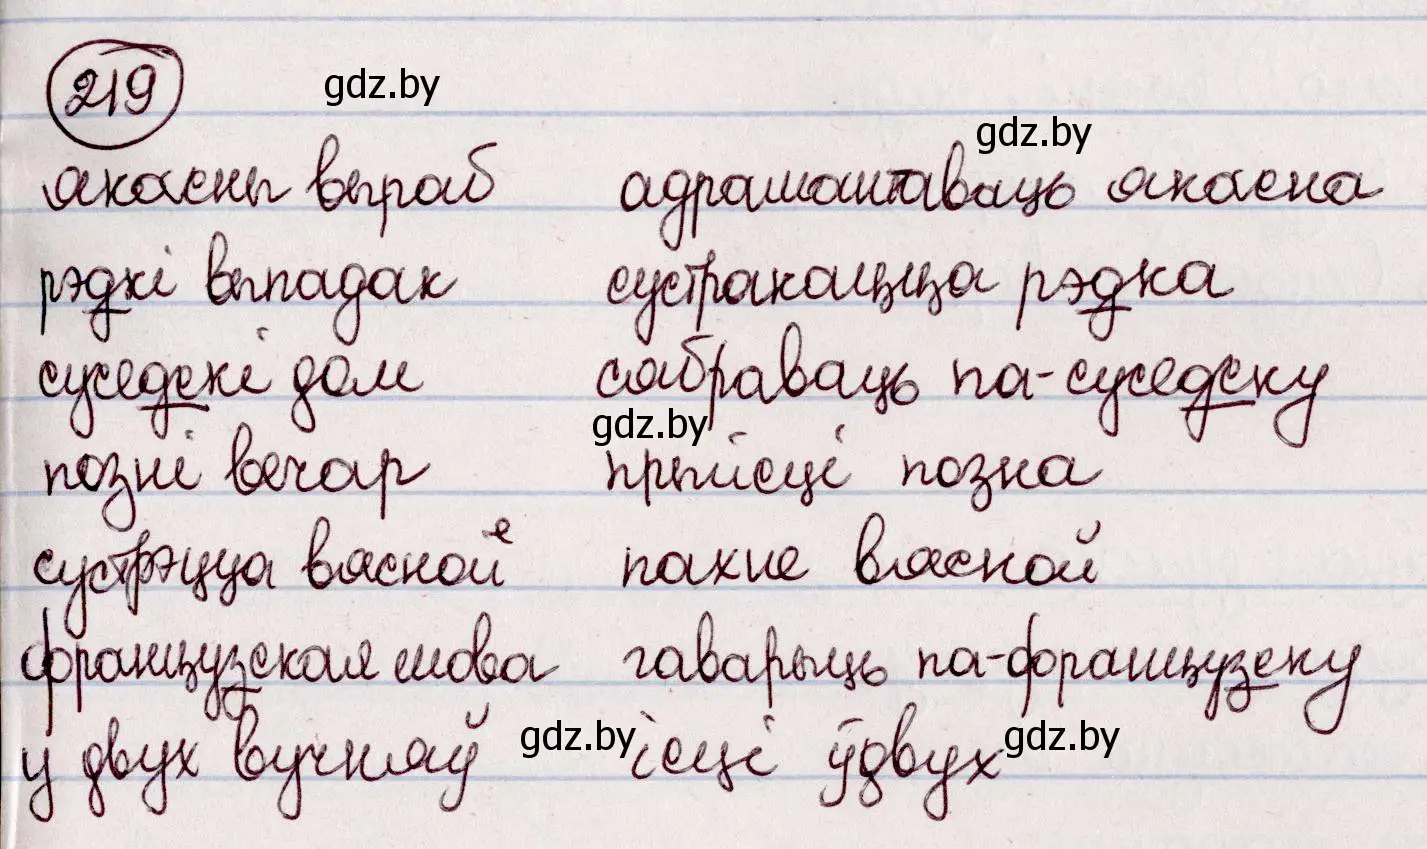 219 gdz.by
gdz.by
якасны выраб адрамантаваць якасна
рэдкі выпадак сустракацца рэдка
суседскі дом сябраваць па-суседску
gdz.by
позні вечар прыйсці позна
сустрэцца вясной пахне вясной
французская мова гаварыць па-французску
у двух вучняў gdz.by ісці ўдвух gdz.by